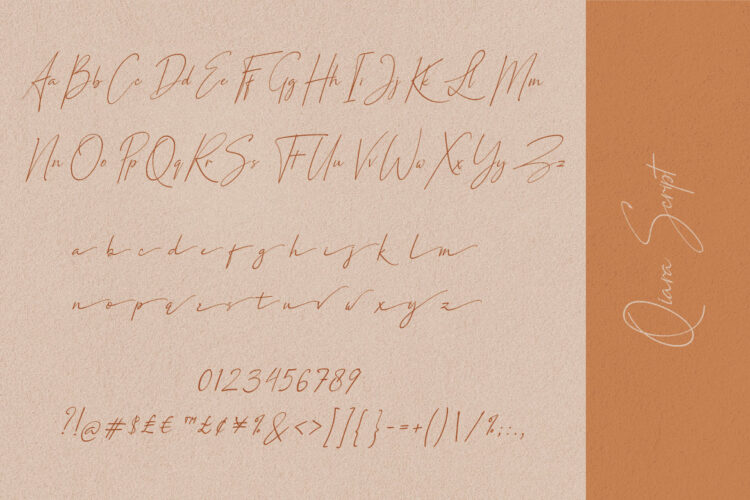 Aa Bb Cc Dd Ee Ff Gg Hh Ii Jj Kk Ll Mm
Nn Oo Pp Qq Rr Ss Tt Uu Vv Ww Xx Yy Zz
a b c d e f g h i j k l m
n o p q r s t u v w x y z
0123456789
?!@#$££€ ™£¢¥%&<>[]{}-=+()\|/%;:.,
Qiara Script